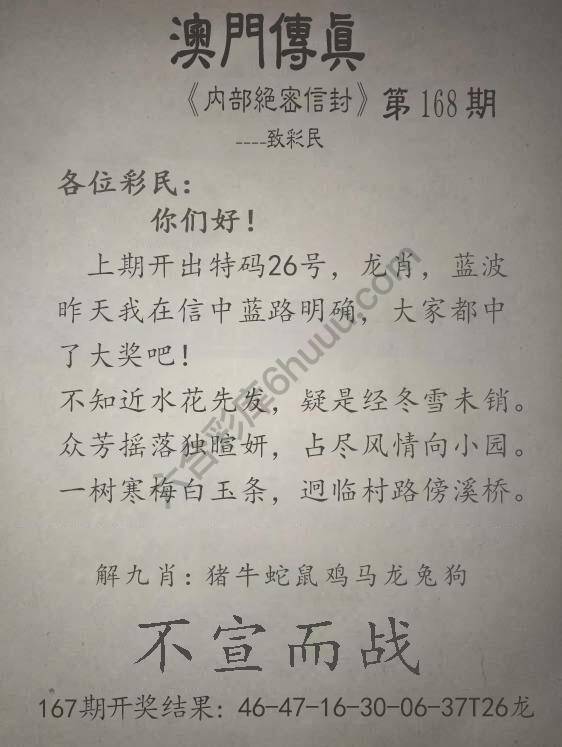 澳門傳眞
《内部絕密信封》第168期
----致彩民
各位彩民：
你们好！
上期开出特码26号，龙肖，蓝波
昨天我在信中蓝路明确，大家都中
了大奖吧！
不知近水花先发，疑是经冬雪未销。
众芳摇落独暄妍，占尽风情向小园。
一树寒梅白玉条，迥临村路傍溪桥。
解九肖：猪牛蛇鼠鸡马龙兔狗
不宣而战
167期开奖结果：46-47-16-30-06-37T26龙
六合彩库6huuu.com